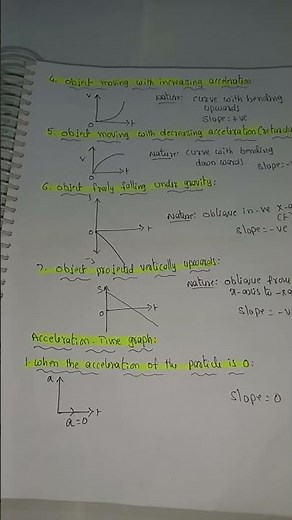 4. object moving with increasing acceleration:
V
Nature: curve with bending
upwards
slope=+ve
0
t
5. object moving with decreasing acceleration
V
Nature: curve with bending
down wards
slope=-
0
t
6. object freely falling under gravity:
0
t
Nature: oblique in -ve
slope=-ve
7. object projected vertically upwards:
0
t
Nature: oblique from
x-axis to
slope=-v
Acceleration-Time graph:
1. when the acceleration of the particle is 0:
a
slope=0
0
t
a=0